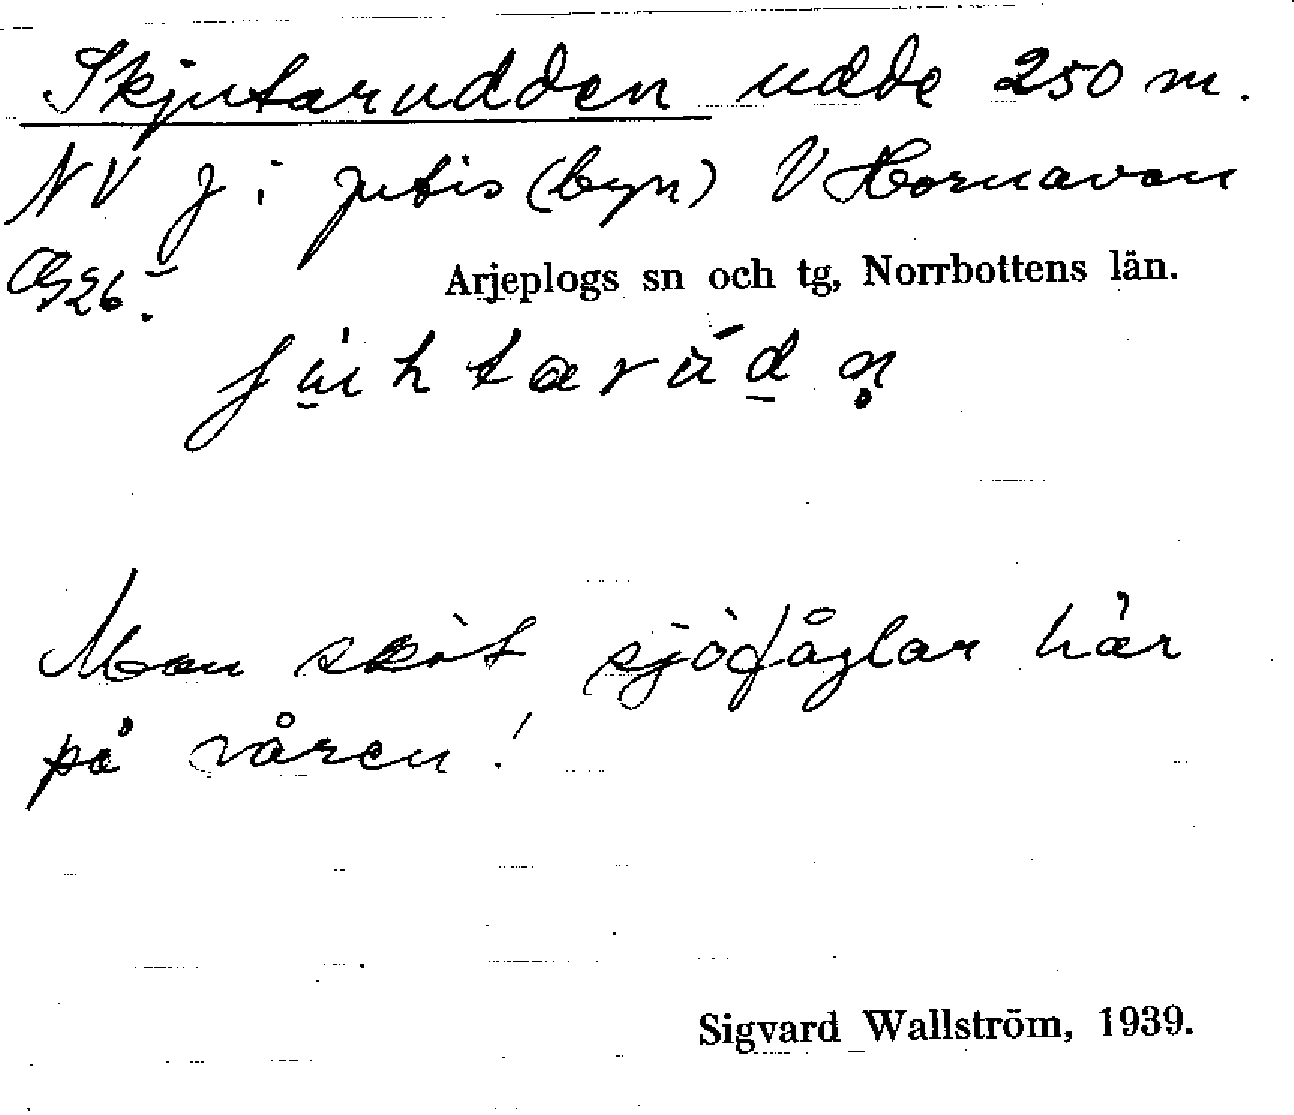 Skjutarudden udde 250 m.
NV J i Jutis (byn) V Hornavan
Arjeplogs sn och tg, Norrbottens län.
Man sköt sjöfåglar här
på våren!
Sigvard Wallström, 1939.